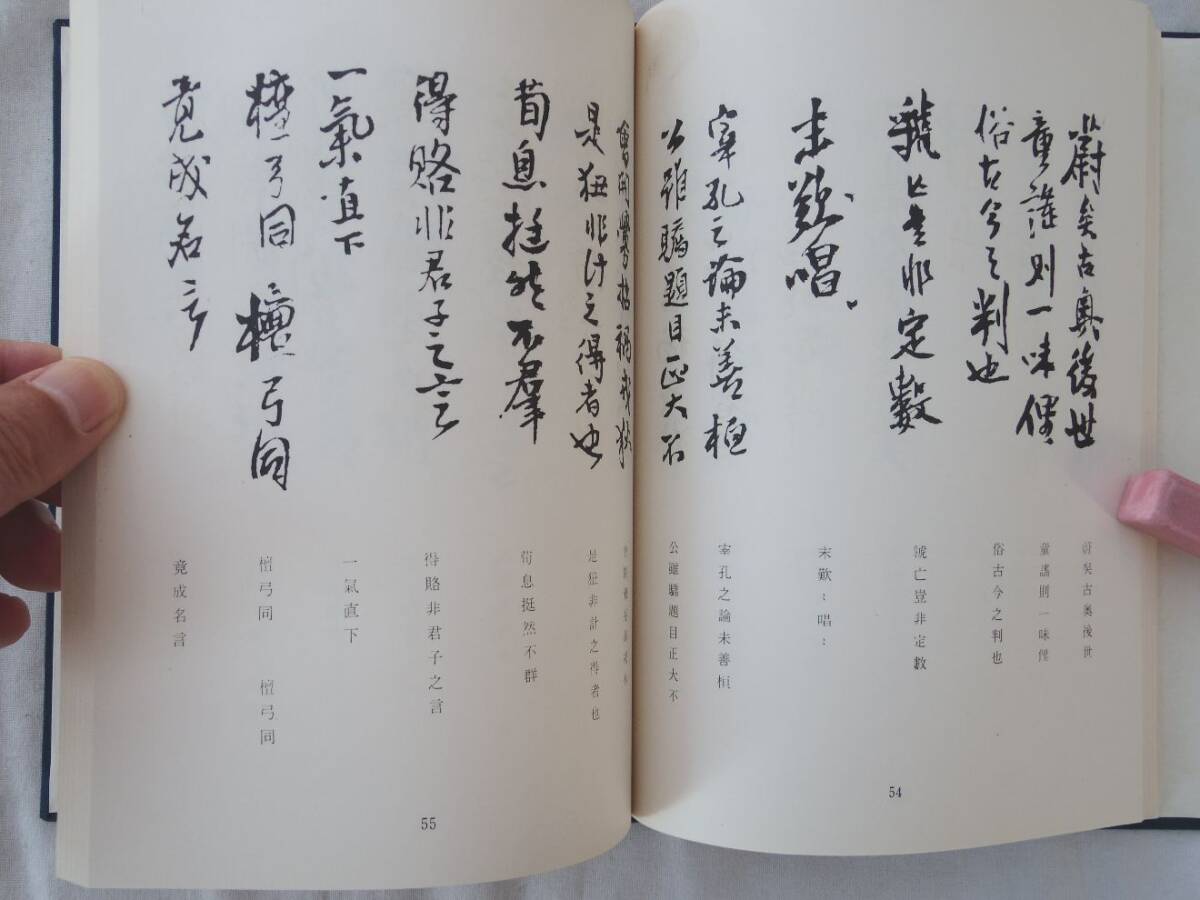 蔚矣古奥後世
童謠則一味俚
俗古今之判也
虢亡豈非定數
末歎〻唱〻
宰孔之論未善桓
公雖驕題目正大不
蔚矣古奥後世
童謠則一味俚
俗古今之判也
虢亡豈非定數
末歎〻唱〻
宰孔之論未善桓
公雖驕題目正大不
54
是狃非計之得者也
荀息挺然不羣
得賂非君子之言
一氣直下
檀弓同 檀弓同
竟成名言
是狂非計之得者也
荀息挺然不群
得賂非君子之言
一氣直下
檀弓同 檀弓同
竟成名言
55